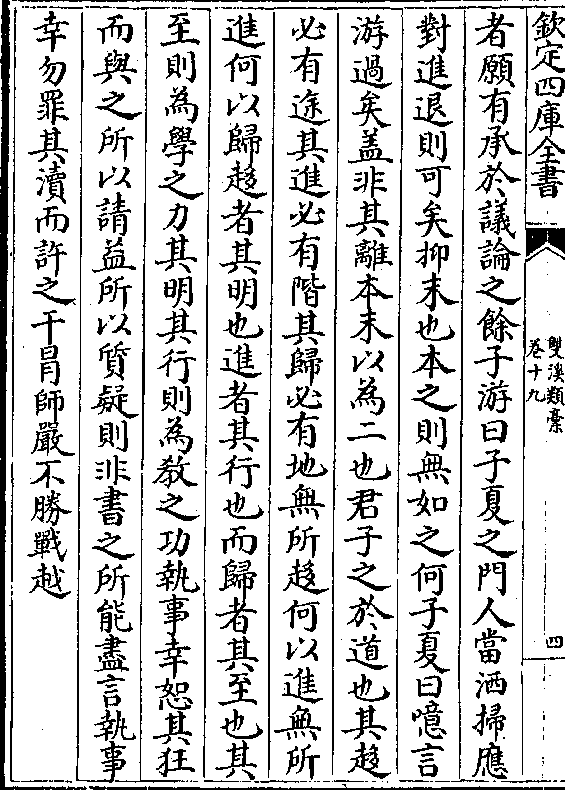 欽定四庫全書
雙溪類藁
卷十九
四
者願有承於議論之餘子游曰子夏之門人當洒掃應
對進退則可矣抑末也本之則無如之何子夏曰噫言
游過矣盖非其離本末以為二也君子之於道也其趍
必有途其進必有階其歸必有地無所趍何以進無所
進何以歸趍者其明也進者其行也而歸者其至也其
至則為學之力其明其行則為教之功執事幸恕其狂
而與之所以請益所以質疑則非書之所能盡言執事
幸勿罪其瀆而許之干冐師嚴不勝戰越